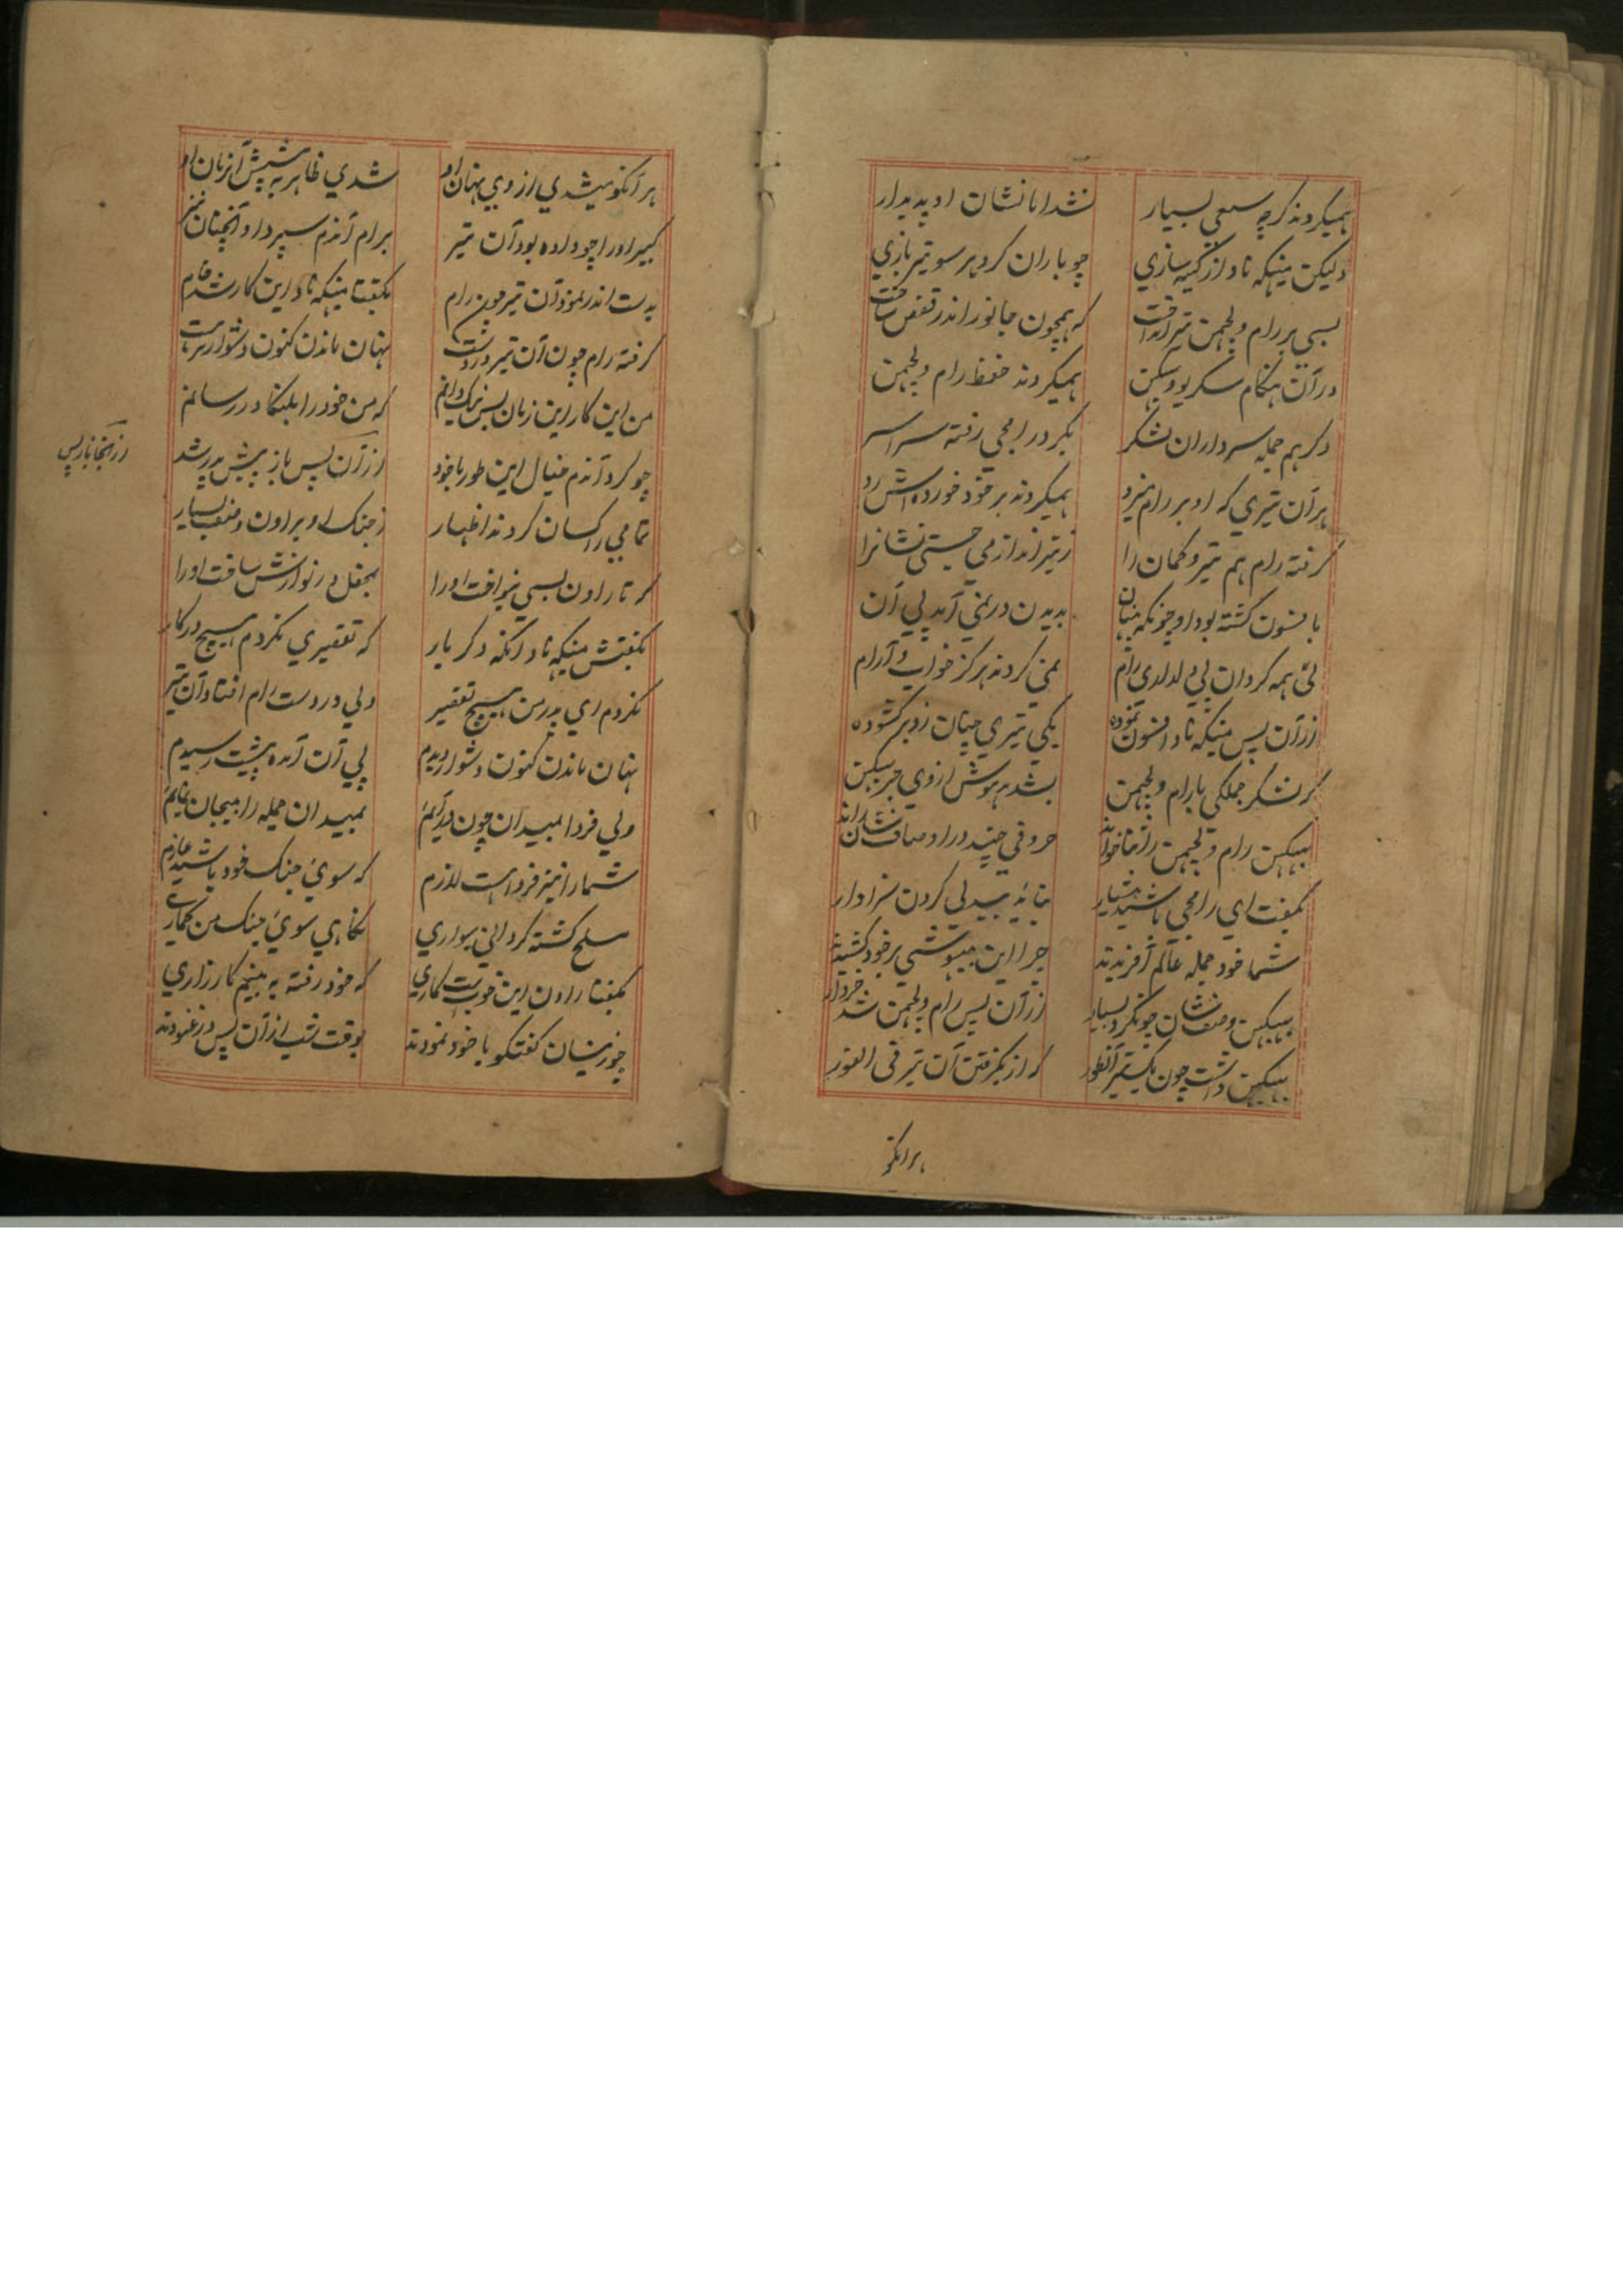 همیکردند کرچه سعی بسیار نشد اما نشان او پدیدار
ولیکن میکهه ناد از کینه سازی چو باران کرد هر سو تیر بازی
بسی بر رام و لچمن تیر انداخت که همچون جانور اندر قفس ساخت
در آن هنکام سکریو و ببیکن همیکردند حفظ رام و لچمن
دکر هم جمله سرداران لشکر بکرد رامجی رفته سراسر
هر آن تیری که او بر رام میزد همیکردند بر خود خورده اش رد
کرفته رام هم تیر و کمان را ز تیر انداز می جستی نشانرا
بافسون کشته بود او چونکه پنهان بدیدن در نمی آمد پی آن
لئی همه کردان پی دلدلدی رام نمی کردند هرکز خواب و آرام
ز آن پس میکهه ناد افسون نموده یکی تیری چنان زد بر کشوده
که لشکر جملکی با رام و لچمن بشد بیهوش از وی جز ببیکن
ببیکن رام و لچمن را خواند حروفی چند در اوصافشان راند
بکفت ای رامجی باشید هشیار نباید بیدلی کردن سزاوار
شما خود جمله عالم آفریدید چرا این بیهوشی بر خود کشیدید
ببیکن وصفشان چون کرد بسیار ز آن پس رام و لچمن شد خبردار
ببیکن داشت چون یک تیر آنطور که از بکرفتن آن تیر فی الفور
هر آنکو
هر آنکو میشدی از وی پنهان او شدی ظاهر به پیش آنزمان او
کبیر او را چو داده بود آن تیر برام آندم سپرد او آنچنان تیر
بدست اندر نمود آن تیر چون رام بکفتا میکهه ناد این کار شد خام
کرفته رام چون آن تیر در دست پنهان ماندن کنون دشوارتر است
من این کار این زمان بس نیک دانم که من خود را بلنکا در رسانم
چو کرد آندم خیال این طور با خود از آن پس باز پیش پدر شد
از آنجا باز پس
تمامی راکسان کردند اظهار ز جنک او براون وصف بسیار
که تا راون بسی بنواخت او را بچفل در نوازش ساخت او را
بکفتش میکهه ناد آنکه دکر بار که تقصیری نکردم هیچ در کار
نکردم ای پدر من هیچ تقصیر ولی در دست رام افتاد آن تیر
پنهان ماندن کنون دشوار دیدم پی آن آمده پیشت رسیدم
ولی فردا بمیدان چون در آیم بمیدان جمله را بیجان نمایم
شما را نیز فردا هست لازم که سوی جنک خود باشید عازم
مسلح کشته کردانی سواری نکاهی سوی جنک من کماری
بکفتا راون این خوبست کاری که خود رفته به بینم کارزاری
چو زینسان کفتکو با خود نمودند بوقت شب از آن پس در غنودند